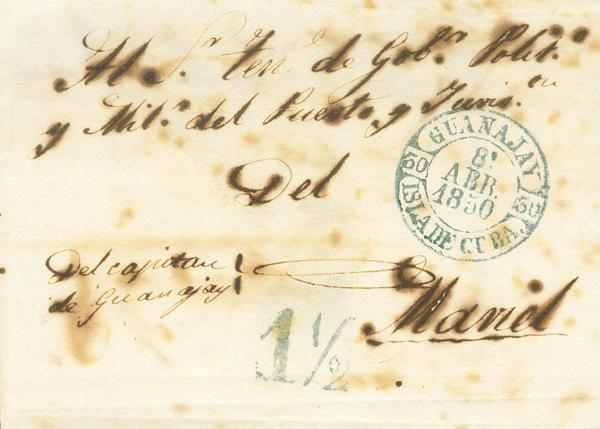 Al S.r ten.e de Gob.r Polit.o
y Mil.r del Puerto y Juris.on
Del
GUANAJAY
8
ABR.
1850
ISLA DE CUBA
Del capitan
de Guanajay
Mariel
1 1/2